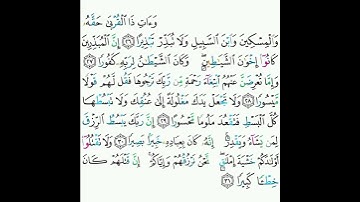 وَءَاتِ ذَا ٱلۡقُرۡبَىٰ حَقَّهُۥ
وَٱلۡمِسۡكِينَ وَٱبۡنَ ٱلسَّبِيلِ وَلَا تُبَذِّرۡ تَبۡذِيرًا ٢٦ إِنَّ ٱلۡمُبَذِّرِينَ
كَانُوٓاْ إِخۡوَٰنَ ٱلشَّيَٰطِينِۖ وَكَانَ ٱلشَّيۡطَٰنُ لِرَبِّهِۦ كَفُورًا ٢٧
وَإِمَّا تُعۡرِضَنَّ عَنۡهُمُ ٱبۡتِغَآءَ رَحۡمَةٖ مِّن رَّبِّكَ تَرۡجُوهَا فَقُل لَّهُمۡ قَوۡلٗا
مَّيۡسُورٗا ٢٨ وَلَا تَجۡعَلۡ يَدَكَ مَغۡلُولَةً إِلَىٰ عُنُقِكَ وَلَا تَبۡسُطۡهَا
كُلَّ ٱلۡبَسۡطِ فَتَقۡعُدَ مَلُومٗا مَّحۡسُورًا ٢٩ إِنَّ رَبَّكَ يَبۡسُطُ ٱلرِّزۡقَ
لِمَن يَشَآءُ وَيَقۡدِرُۚ إِنَّهُۥ كَانَ بِعِبَادِهِۦ خَبِيرَۢا بَصِيرٗا ٣٠ وَلَا تَقۡتُلُوٓاْ
أَوۡلَٰدَكُمۡ خَشۡيَةَ إِمۡلَٰقٖۖ نَّحۡنُ نَرۡزُقُهُمۡ وَإِيَّاكُمۡۚ إِنَّ قَتۡلَهُمۡ كَانَ
خِطۡـٔٗا كَبِيرٗا ٣١